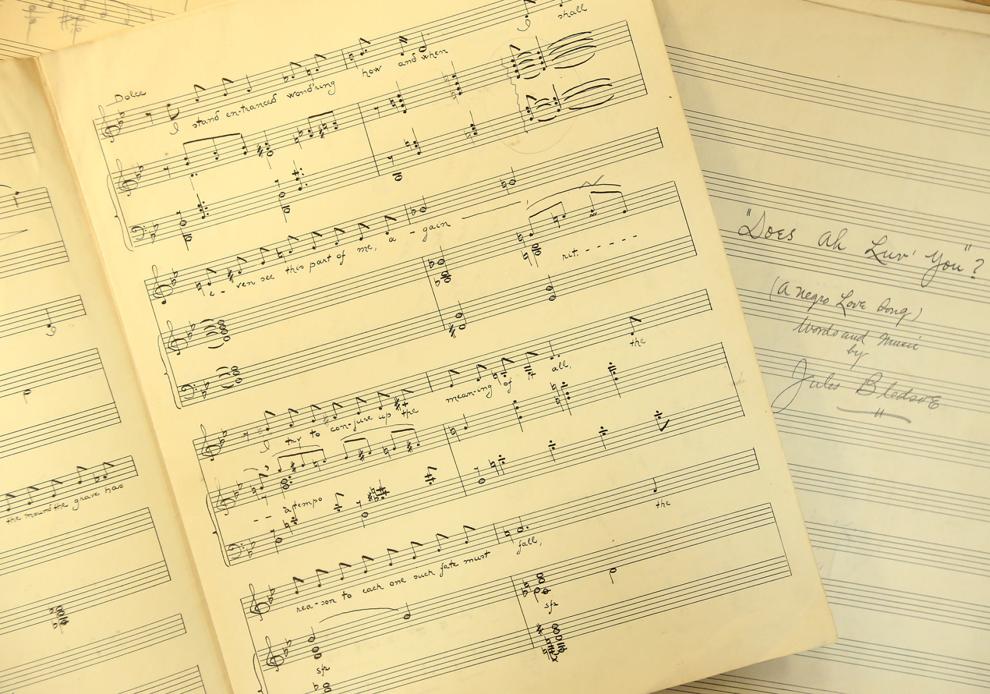 the mound the grave has
Dolce
I stand en-tranced wond'ring how and when I shall
e - ven see this part of me, a - gain
rit. - - - - - -
I try to con-jure up the meaning of all, the
a tempo
rea-son to each one such fate must fall, the
sfz
sfz
"Does Ah Luv' You"?
(A Negro Love Song)
Words and Music
by
Jules Bledsoe